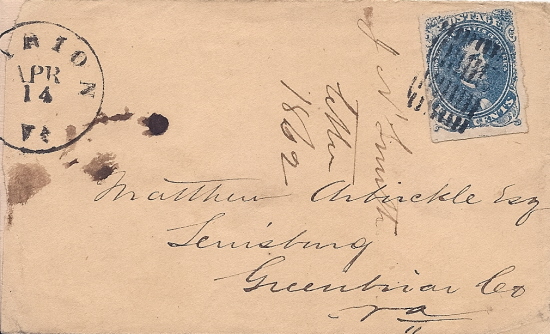 RION
APR
14
VA
POSTAGE
CENTS
J N Smith
Letter
1862
Matthew Arbuckle Esq
Lewisburg
Greenbriar Co
va